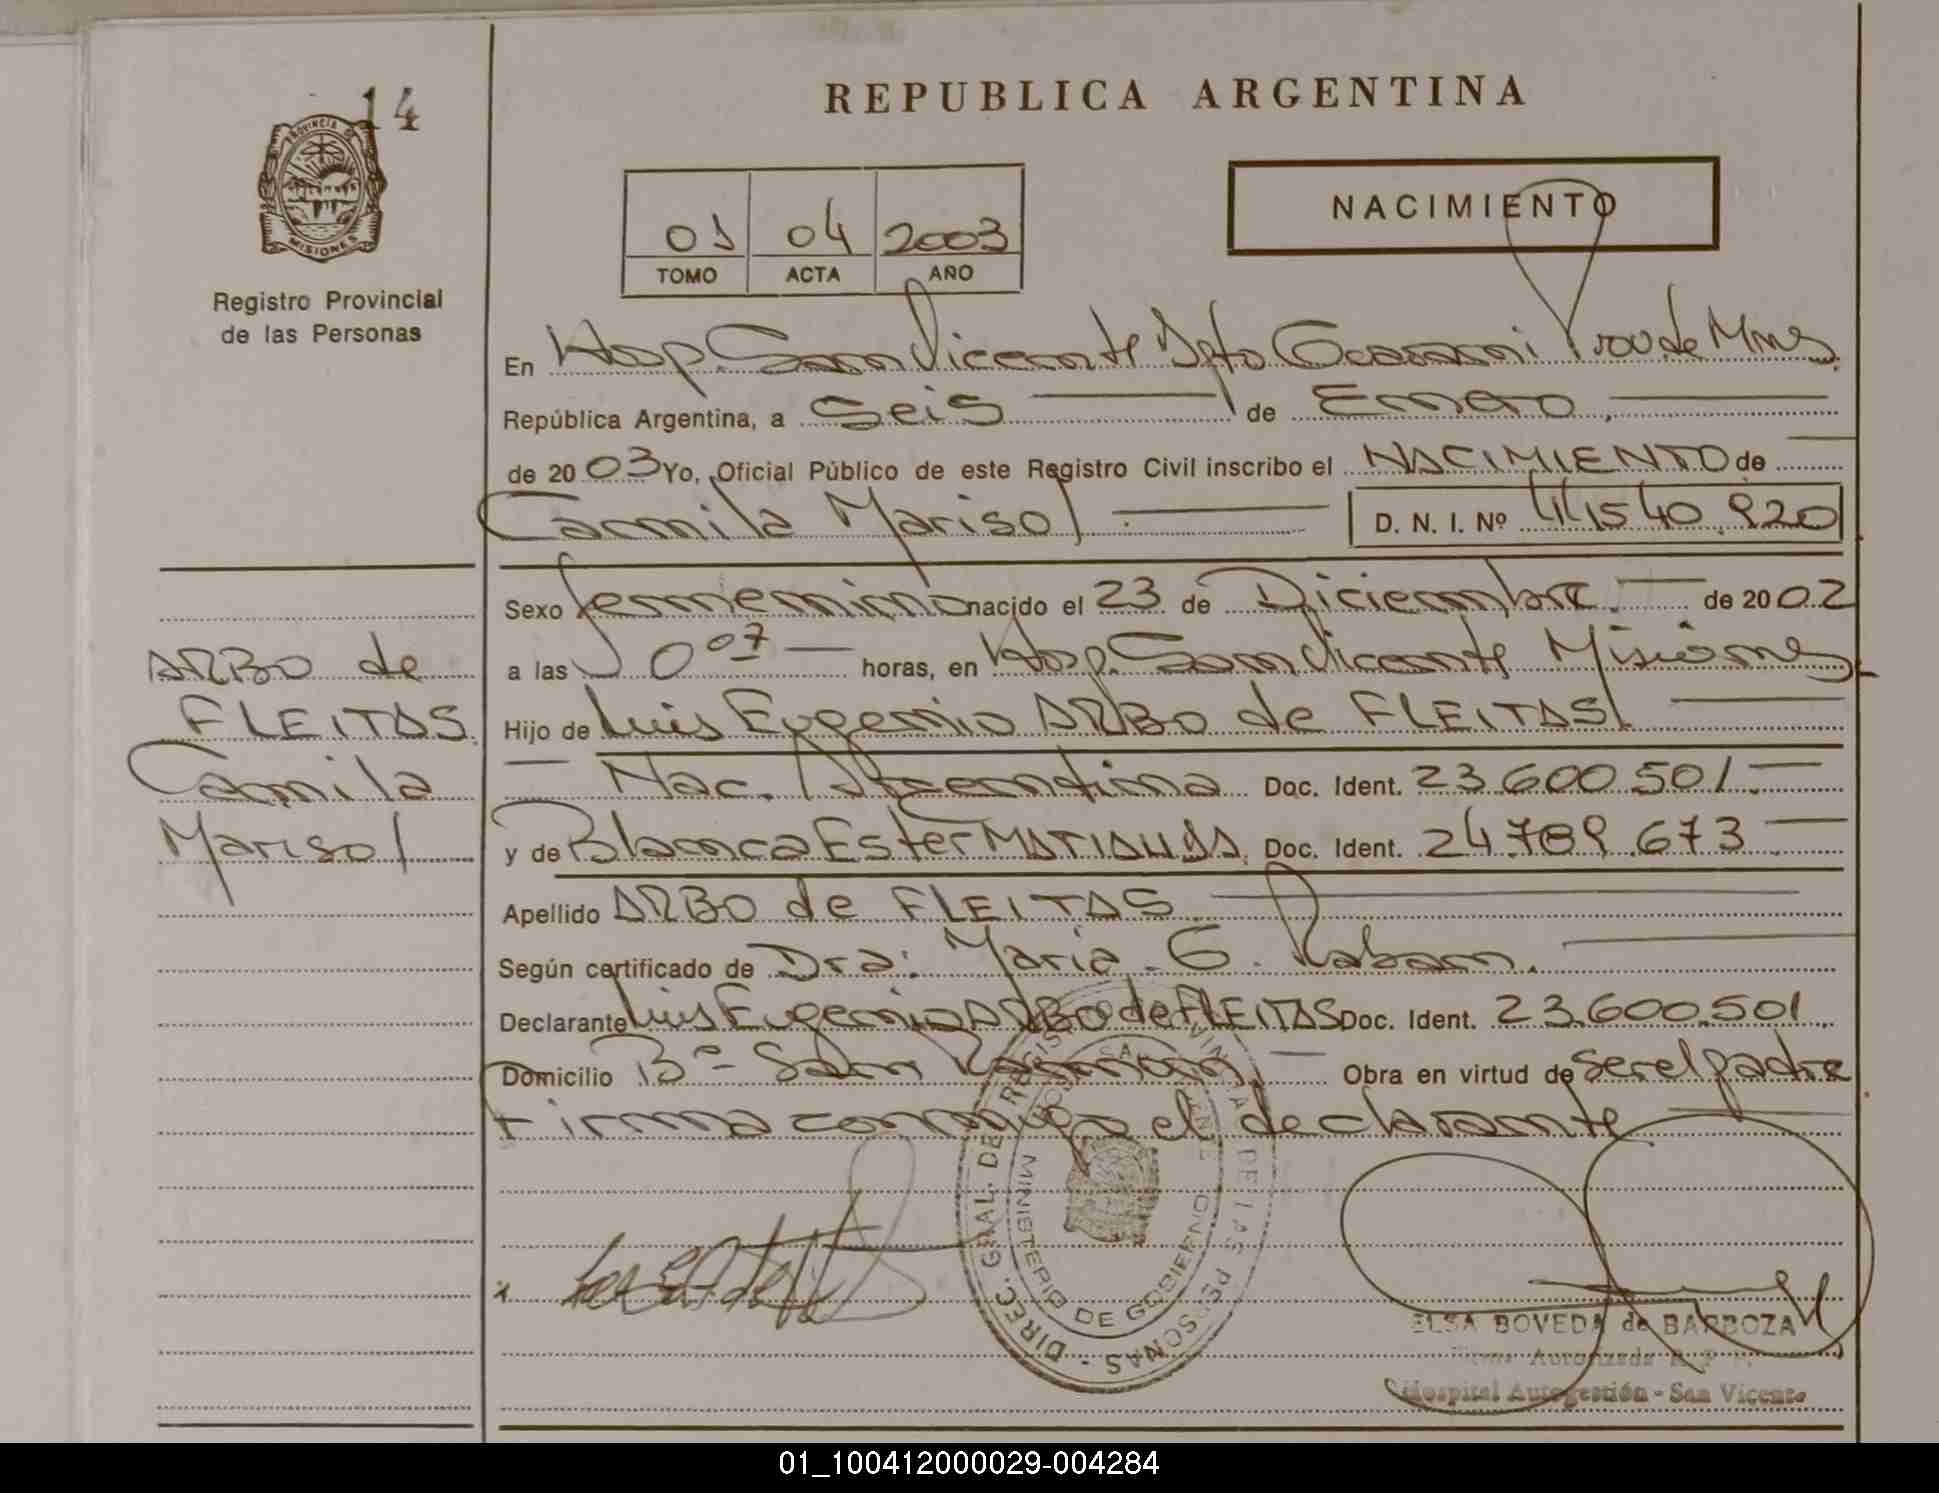 14
PROVINCIA DE
MISIONES
Registro Provincial
de las Personas
ARBO de
FLEITAS
Camila
Marisol
REPUBLICA ARGENTINA
01 04 2003
TOMO ACTA AÑO
NACIMIENTO
En Hosp. San Vicente Dpto Guarani Prov de Mnes
República Argentina, a Seis de Enero
de 2003 Yo, Oficial Público de este Registro Civil inscribo el NACIMIENTO de
Camila Marisol D. N. I. Nº 44.540.920
Sexo femenino nacido el 23 de Diciembre. de 2002
a las 0 07 horas, en Hosp. San Vicente Misiones
Hijo de Luis Eugenio ARBO de FLEITAS
Nac. Argentina Doc. Ident. 23.600.501
y de Blanca Ester Doc. Ident. 24.789.673
Apellido ARBO de FLEITAS
Según certificado de Dra: Maria G.
Declarante Luis Eugenio ARBO de FLEITAS Doc. Ident. 23.600.501
Domicilio Bº San Ramon Obra en virtud de ser el padre
Firma conmigo el declarante
DIREC. GRAL. DE REGISTRO PROVINCIAL DE LAS PERSONAS
MINISTERIO DE GOBIERNO
ELSA BOVEDA de BARBOZA
Firma Autorizada R. P. P.
Hospital Autogestión - San Vicente
01_100412000029-004284